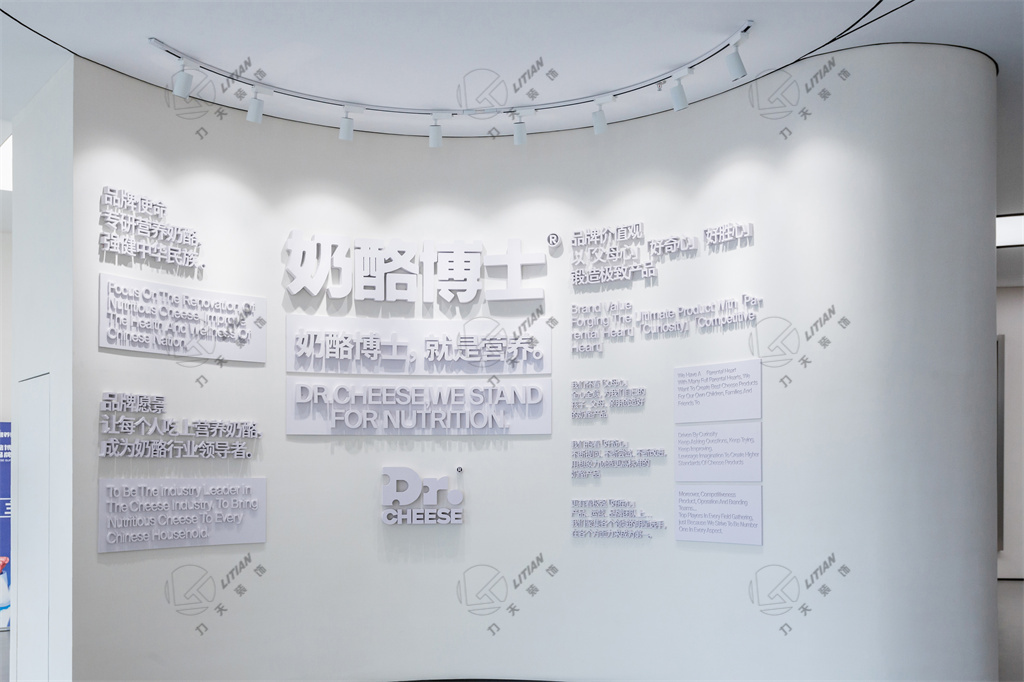 品牌使命
专研营养奶酪,
强健中华民族。
Focus On The Renovation Of
Nutritious Cheese, Improve
The Health And Wellness Of
Chinese Nation.
品牌愿景
让每个人吃上营养奶酪,
成为奶酪行业领导者。
To Be The Industry Leader In
The Cheese Industry, To Bring
Nutritious Cheese To Every
Chinese Household.
奶酪博士®
奶酪博士,就是营养。
DR.CHEESE,WE STAND
FOR NUTRITION.
Dr.®
CHEESE
品牌价值观
以「父母心」「好奇心」「好胜心」
锻造极致产品
Brand Value
Forging The Ultimate Product With "Pa-
rental Heart", "Curiosity," "Competitive
Heart"
We Have A " Parental Heart"
With Many Full Parental Hearts, We
Want To Create Best Cheese Products
For Our Own Children, Families And
Friends To
Driven By Curiosity
Keep Asking Questions, Keep Trying,
Keep Improving.
Leverage Imagination To Create Higher
Standards Of Cheese Products.
Moreover, Competitiveness
Product, Operation And Branding
Teams....
Top Players In Every Field Gathering,
Just Because We Strive To Be Number
One In Every Aspect...
LITIAN
力天装饰
LITIAN
力天装饰
LITIAN
力天装饰
LITIAN
力天装饰
LITIAN
力天装饰
LITIAN
力天装饰
LITIAN
力天装饰
LITIAN
力天装饰
LITIAN
力天装饰